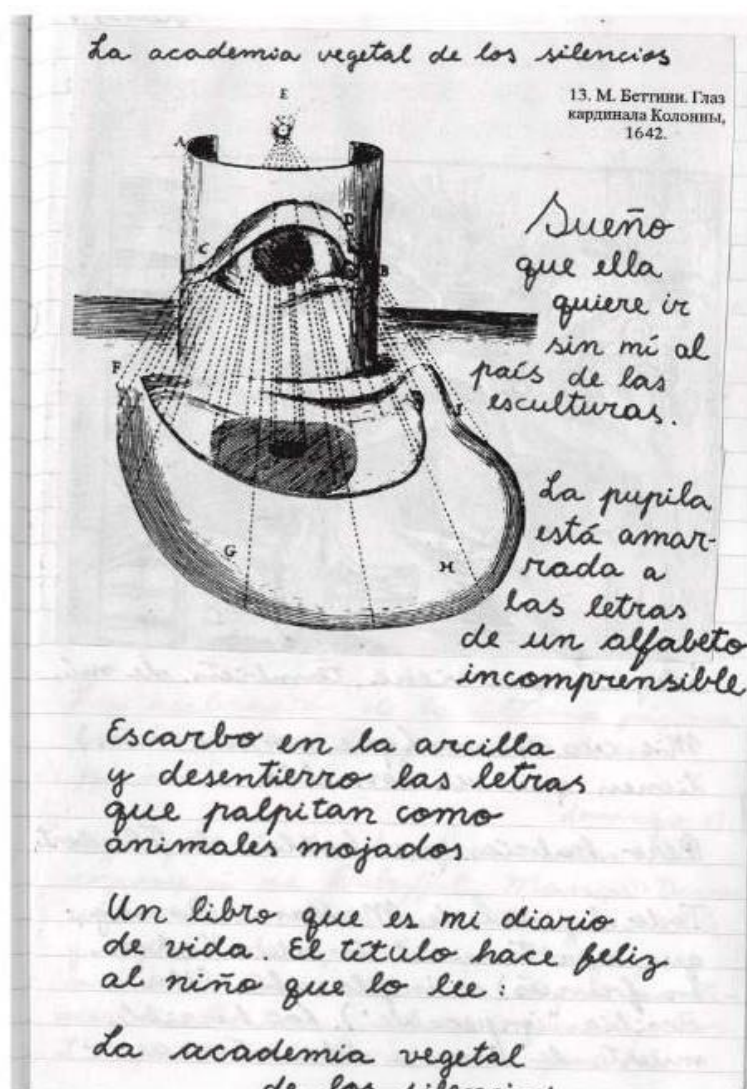 La academia vegetal de los silencios
13. М. Беттини. Глаз
кардинала Колонны,
1642.
E
A
D
C
B
F
G
H
Sueño
que ella
quiere ir
sin mí al
país de las
esculturas.
La pupila
está amar-
rada a
las letras
de un alfabeto
incomprensible
Escarbo en la arcilla
y desentierro las letras
que palpitan como
animales mojados
Un libro que es mi diario
de vida. El título hace feliz
al niño que lo lee:
La academia vegetal
de los silencios